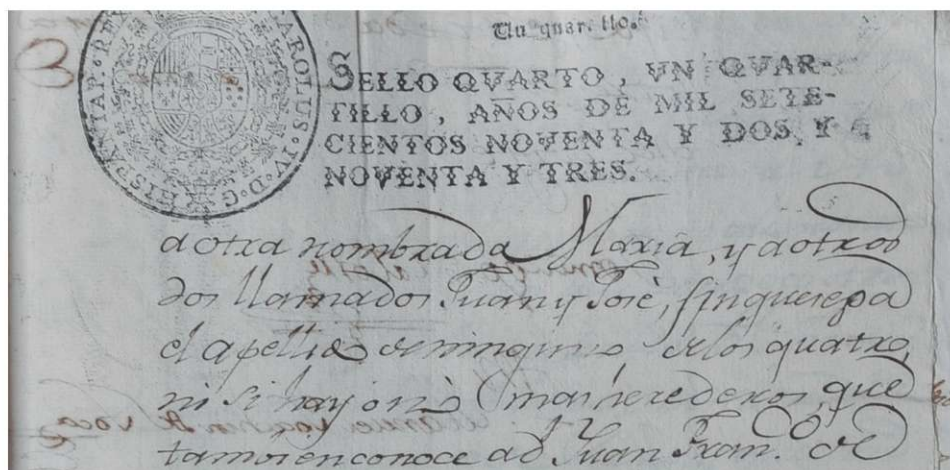 Un quartillo.
CAROLUS·IV·D·G·HISPANIAR·REX
SELLO QVARTO, VN QVAR-
TILLO, AÑOS DE MIL SETE-
CIENTOS NOVENTA Y DOS, Y
NOVENTA Y TRES.
a otra nombrada Maria, y a otros
dos llamados Juan y José, sin que sepa
el apellido de ninguno de los quatro,
ni si hay o no mas herederos, que
tamvien conoce a Dn Juan Fran.co de